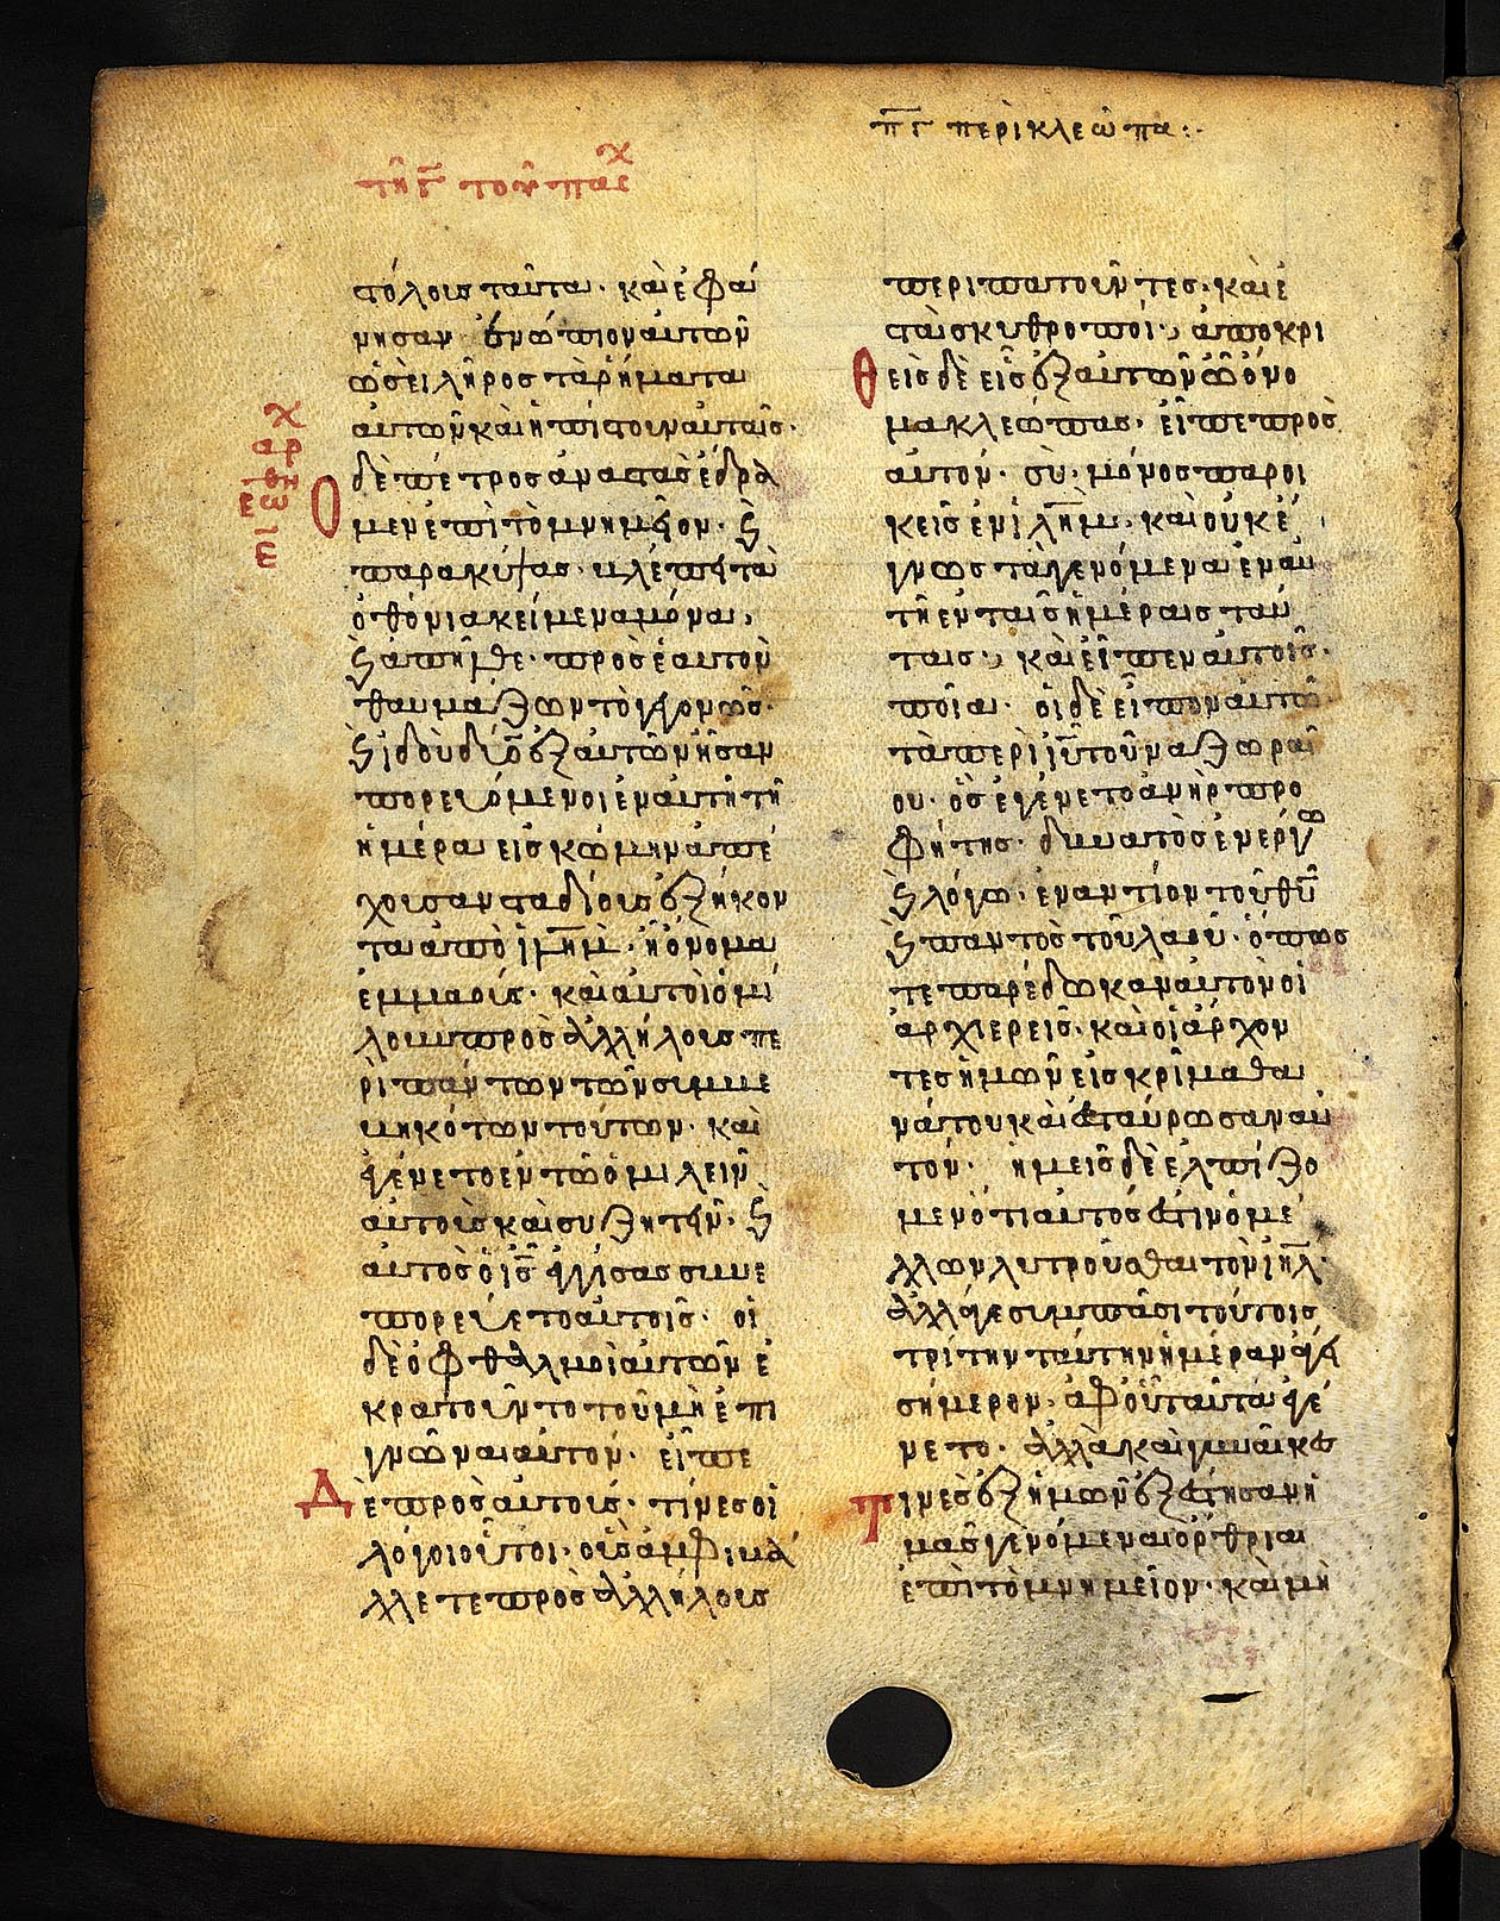 πγ περὶ κλεώπα:·
τῆ γ τοῦ πάσχ
στόλους ταῦτα· καὶ ἐφά
νησαν ἐνώπιον αὐτῶν
ὡσεὶ λῆρος τὰ ρήματα
αὐτῶν καὶ ἠπίστουν αὐταῖς·
Ο δὲ πετρος ἀναστὰς ἔδρα
μεν ἐπὶ τὸ μνημεῖον· ϗ
παρακύψας βλέπει τὰ
ὀθόνια κείμενα μόνα·
ϗ ἀπῆλθε· πρὸς ἑαυτὸν
θαυμάζων τὸ γεγονώς·
ϗ ἰδοὺ δύο ἐξ αὐτῶν ἦσαν
πορευόμενοι ἐν αὐτῆ τῆ
ἡμέρα εἰς κώμην ἀπέ
χουσαν σταδίους ἐξήκον
τα ἀπὸ ἰλημ· ἧ ὄνομα
ἐμμαούς· καὶ αὐτοὶ ὁμί
λουν πρὸς ἀλλήλους πε
ρὶ πάντων τῶν συμβε
βηκότων τούτων· καὶ
ἐγένετο ἐν τῶ ὁμιλεῖν
αὐτοὺς καὶ συζητεῖν· ϗ
αὐτὸς ὁ ἰς ἐγγίσας συνε
πορεύετο αὐτοῖς· οἱ
δὲ ὀφθαλμοὶ αὐτῶν ἐ
κρατοῦντο τοῦ μὴ ἐπι
γνῶναι αὐτόν· εἶπε
Δὲ πρὸς αὐτούς· τίνες οἱ
λόγοι οὗτοι· οὓς ἀμφιβά
λλετε πρὸς ἀλλήλους
περιπατοῦντες· καὶ ἐ
σταὶ σκυθρωποί·, ἀποκρι
Θεὶς δὲ εἷς ἐξ αὐτῶν ὧ ὄνο
μα κλεώπας· εἶπε πρὸς
αὐτόν· σὺ μόνος παροι
κεῖς ἐν ἰλημ· καὶ οὐκ ἔ
γνως τὰ γενόμενα ἐν αὐ
τῆ ἐν ταῖς ἡμέραις ταύ
ταις·, καὶ εἶπεν αὐτοῖς·
ποῖα· οἱ δὲ εἶπον αὐτῶ·
τὰ περὶ ιυ τοῦ ναζωραί
ου· ὃς ἐγένετο ἀνὴρ προ
φήτης· δυνατὸς ἐν ἔργω
ϗ λόγω· ἐναντίον τοῦ θυ
ϗ παντὸς τοῦ λαοῦ· ὅπως
τε παρέδωκαν αὐτὸν οἱ
ἀρχιερεῖς· καὶ οἱ ἄρχον
τες ἡμῶν εἰς κρίμα θα
νάτου καὶ ἐσταύρωσαν αὐ
τόν· ἡμεῖς δὲ ἐλπίζο
μεν ὅτι αὐτός ἐστιν ὁ μέ
λλων λυτροῦσθαι τὸν ιηλ·
ἀλλάγε συμπᾶσι τούτοις
τρίτην ταύτην ἡμέραν ἄγει
σήμερον· ἀφ οὗ ταῦτα ἐγέ
νετο· ἀλλὰ καὶ γυναῖκες
Τινὲς ἐξ ἡμῶν ἐξέστησαν ἡ
μᾶς γενόμεναι ὄρθριαι
ἐπὶ τὸ μνημεῖον· καὶ μὴ